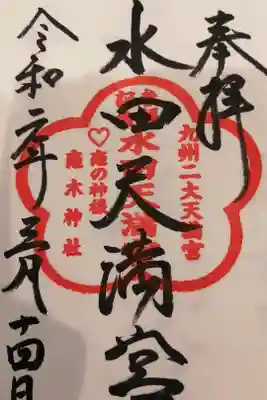 奉拝
九州二大天満宮
水田天満宮
♡恋の神様
恋木神社
令和二年三月十四日